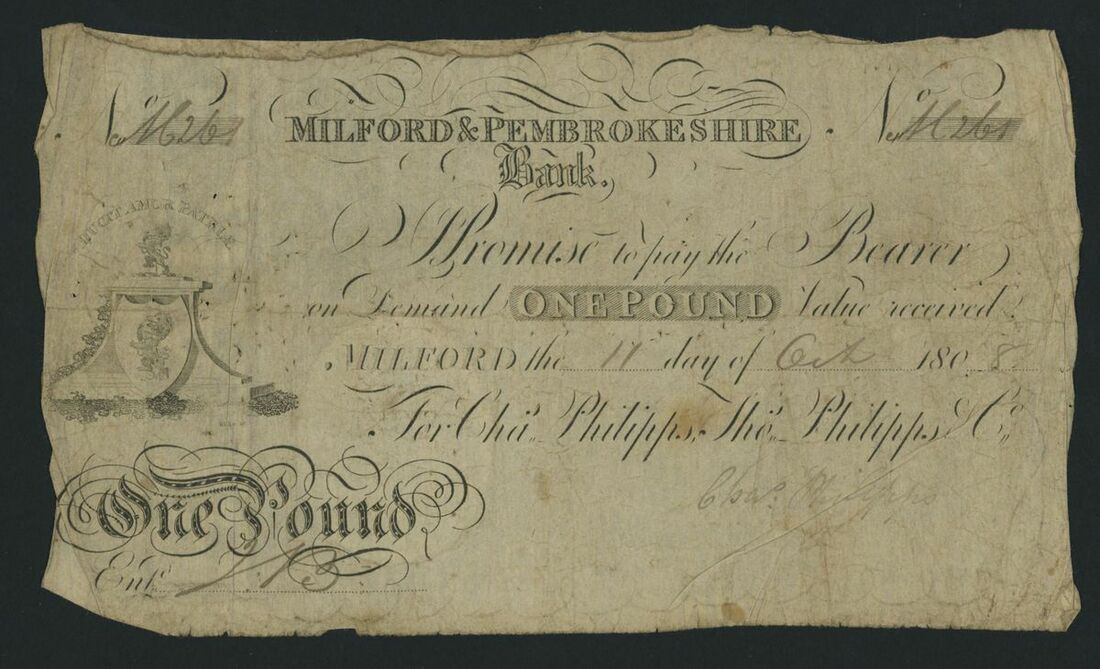 No M261 No M261
MILFORD & PEMBROKESHIRE
Bank.
DUCIT AMOR PATRIÆ
I Promise to pay the Bearer
on Demand ONE POUND Value received
MILFORD the 11 day of Oct 1808
For Chas. Philipps, Thos. Philipps & Co.
Chas. Philipps
One Pound
Entd.